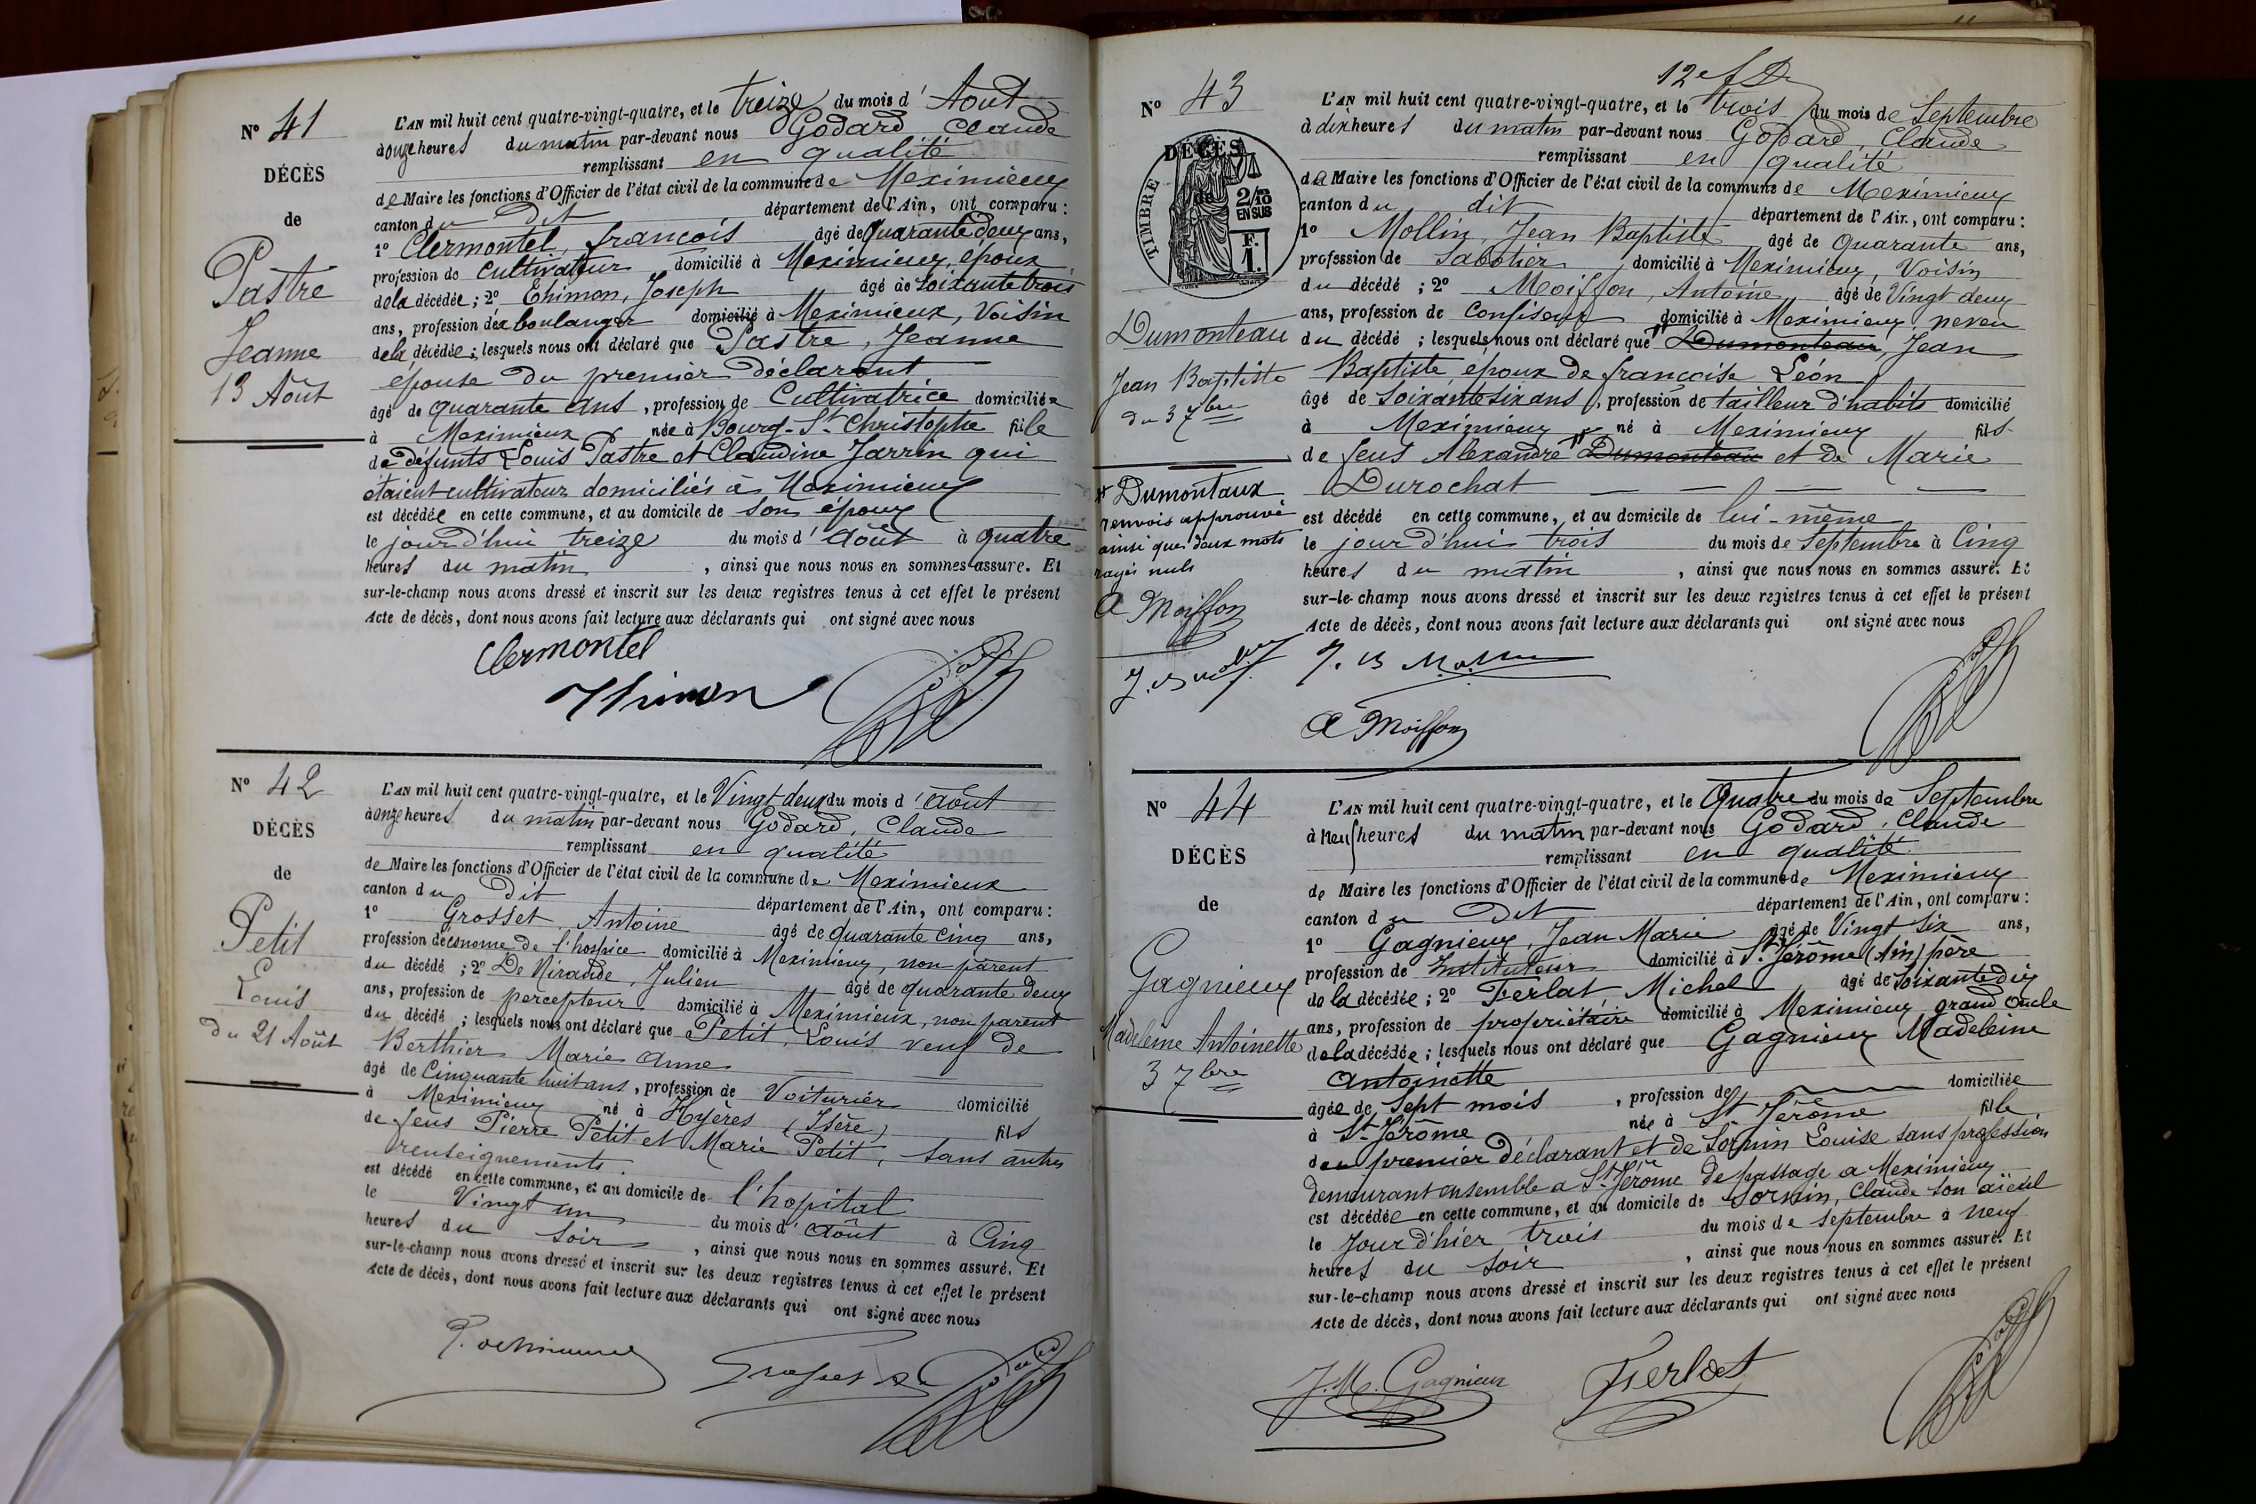 N° 41
DÉCÈS
de
Pastre
Jeanne
13 Août
L'AN mil huit cent quatre-vingt-quatre, et le treize du mois d'Aout
à onze heures du matin par-devant nous Godard Claude
remplissant en qualité
de Maire les fonctions d'Officier de l'état civil de la commune de Meximieux
canton du dit département de l'Ain, ont comparu :
1° Clermontel, françois âgé de quarante deux ans,
profession de cultivateur domicilié à Meximieux, époux
de la décédée ; 2° Thimon, Joseph âgé de soixante trois
ans, profession d'ex boulanger domicilié à Meximieux, Voisin
de la décédée ; lesquels nous ont déclaré que Pastre, Jeanne
épouse du premier déclarant
âgé de quarante ans, profession de Cultivatrice domiciliée
à Meximieux née à Bourg-St-Christophe fille
de défunts Louis Pastre et Claudine Jarrin qui
étaient cultivateurs domiciliés à Meximieux
est décédée en cette commune, et au domicile de son époux
le jour d'hui treize du mois d'Août à quatre
heures du matin, ainsi que nous nous en sommes assuré. Et
sur-le-champ nous avons dressé et inscrit sur les deux registres tenus à cet effet le présent
Acte de décès, dont nous avons fait lecture aux déclarants qui ont signé avec nous
Clermontel
Thimon
N° 42
DÉCÈS
de
Petit
Louis
du 21 Août
L'AN mil huit cent quatre-vingt-quatre, et le Vingt deux du mois d'août
à onze heures du matin par-devant nous Godard, Claude
remplissant en qualité
de Maire les fonctions d'Officier de l'état civil de la commune de Meximieux
canton du dit département de l'Ain, ont comparu :
1° Grosset Antoine âgé de quarante cinq ans,
profession d'économe de l'hospice domicilié à Meximieux, non parent
du décédé ; 2° De Nirande, Julien âgé de quarante deux
ans, profession de percepteur domicilié à Meximieux, non parent
du décédé ; lesquels nous ont déclaré que Petit, Louis veuf de
Berthier Marie Anne
âgé de Cinquante huit ans, profession de Voiturier domicilié
à Meximieux né à Hyères (Isère) fils
de feus Pierre Petit et Marie Petit, sans autres
renseignements.
est décédé en cette commune, et au domicile de l'hopital
le Vingt un du mois d'Août à Cinq
heures du soir, ainsi que nous nous en sommes assuré. Et
sur-le-champ nous avons dressé et inscrit sur les deux registres tenus à cet effet le présent
Acte de décès, dont nous avons fait lecture aux déclarants qui ont signé avec nous
12e f
N° 43
DÉCÈS
de
TIMBRE
2/10
EN SUS
F.
1.
Dumonteau
Jean Baptiste
du 3 7bre
Dumontaux
renvois approuvé
ainsi que deux mots
rayés nuls
A Moiffon
L'AN mil huit cent quatre-vingt-quatre, et le trois du mois de Septembre
à dix heures du matin par-devant nous Godard, Claude
remplissant en qualité
de Maire les fonctions d'Officier de l'état civil de la commune de Meximieux
canton du dit département de l'Ain, ont comparu :
1° Mollin, Jean Baptiste âgé de quarante ans,
profession de Sabotier domicilié à Meximieux, Voisin
du décédé ; 2° Moiffon, Antoine âgé de Vingt deux
ans, profession de Confiseur domicilié à Meximieux, neveu
du décédé ; lesquels nous ont déclaré que Dumonteau, Jean
Baptiste époux de françoise Léon
âgé de soixante six ans, profession de tailleur d'habits domicilié
à Meximieux né à Meximieux fils
de feus Alexandre Dumonteau et de Marie
Durochat
est décédé en cette commune, et au domicile de lui-même
le jour d'hui trois du mois de septembre à Cinq
heures du matin, ainsi que nous nous en sommes assuré. Et
sur-le-champ nous avons dressé et inscrit sur les deux registres tenus à cet effet le présent
Acte de décès, dont nous avons fait lecture aux déclarants qui ont signé avec nous
J. B Mollin
A Moiffon
N° 44
DÉCÈS
de
Gagnieux
Madeleine Antoinette
3 7bre
L'AN mil huit cent quatre-vingt-quatre, et le Quatre du mois de Septembre
à neuf heures du matin par-devant nous Godard, Claude
remplissant en qualité
de Maire les fonctions d'Officier de l'état civil de la commune de Meximieux
canton du dit département de l'Ain, ont comparu :
1° Gagnieux, Jean Marie âgé de Vingt six ans,
profession de Instituteur domicilié à St Jérôme (Ain) père
de la décédée ; 2° Ferlat, Michel âgé de soixante dix
ans, profession de propriétaire domicilié à Meximieux grand oncle
de la décédée ; lesquels nous ont déclaré que Gagnieux Madeleine
Antoinette
âgée de sept mois, profession de domiciliée
à St-Jérôme née à St Jérôme fille
du premier déclarant et de Sornin Louise sans profession
demeurant ensemble a St Jérôme de passage a Meximieux
est décédée en cette commune, et au domicile de Sornin, Claude son aïeul
le jour d'hier trois du mois de septembre à neuf
heures du soir, ainsi que nous nous en sommes assuré. Et
sur-le-champ nous avons dressé et inscrit sur les deux registres tenus à cet effet le présent
Acte de décès, dont nous avons fait lecture aux déclarants qui ont signé avec nous
J. M. Gagnieux
Ferlat